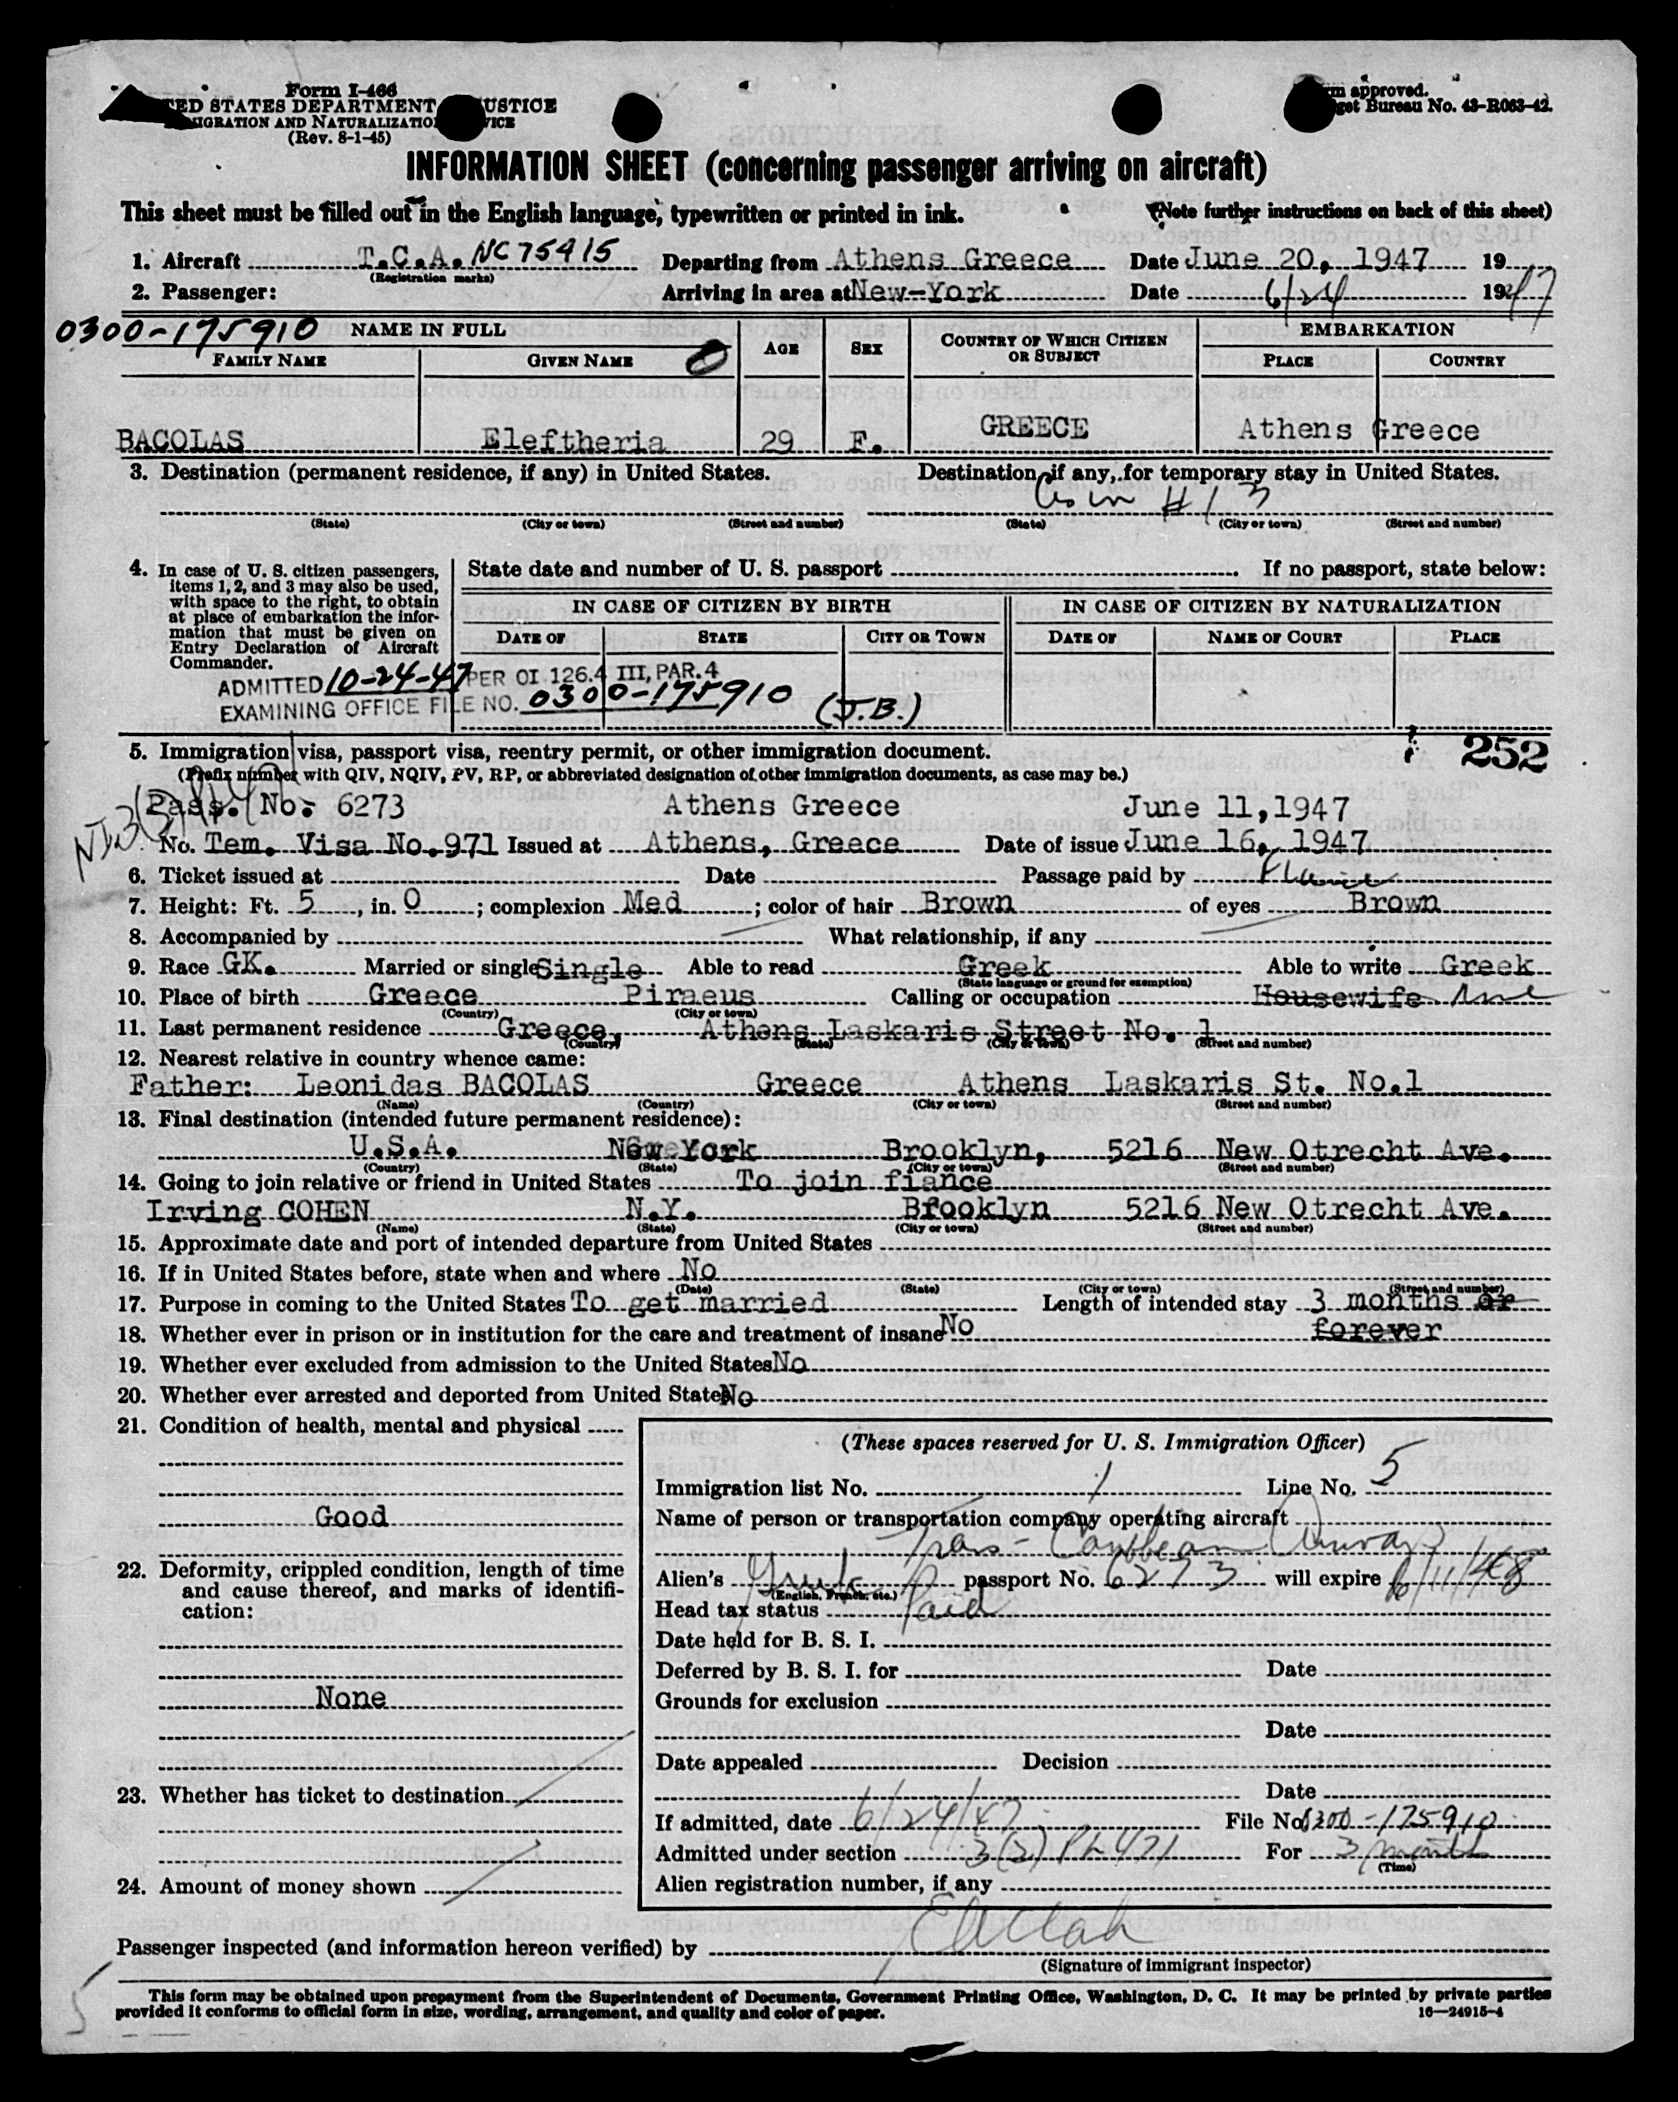 Form I-466
UNITED STATES DEPARTMENT OF JUSTICE
IMMIGRATION AND NATURALIZATION SERVICE
(Rev. 8-1-45)
Form approved.
Budget Bureau No. 43-R063-42.
INFORMATION SHEET (concerning passenger arriving on aircraft)
This sheet must be filled out in the English language, typewritten or printed in ink. (Note further instructions on back of this sheet)
1. Aircraft T.C.A. NC75915 Departing from Athens Greece Date June 20, 1947 19
(Registration marks)
2. Passenger: Arriving in area at New-York Date 6/24 1947
0300-175910 NAME IN FULL AGE SEX COUNTRY OF WHICH CITIZEN OR SUBJECT EMBARKATION
FAMILY NAME GIVEN NAME PLACE COUNTRY
BACOLAS Eleftheria 29 F. GREECE Athens Greece
3. Destination (permanent residence, if any) in United States. Destination, if any, for temporary stay in United States.
#13
(State) (City or town) (Street and number) (State) (City or town) (Street and number)
4. In case of U. S. citizen passengers, items 1, 2, and 3 may also be used, with space to the right, to obtain at place of embarkation the information that must be given on Entry Declaration of Aircraft Commander.
State date and number of U. S. passport If no passport, state below:
IN CASE OF CITIZEN BY BIRTH IN CASE OF CITIZEN BY NATURALIZATION
DATE OF STATE CITY OR TOWN DATE OF NAME OF COURT PLACE
ADMITTED 10-24-47 PER OI 126.4 III, PAR. 4
EXAMINING OFFICE FILE NO. 0300-175910 (J.B.)
252
5. Immigration visa, passport visa, reentry permit, or other immigration document.
(Prefix number with QIV, NQIV, PV, RP, or abbreviated designation of other immigration documents, as case may be.)
Pass. No. 6273 Athens Greece June 11,1947
No. Tem. Visa No.971 Issued at Athens, Greece Date of issue June 16, 1947
6. Ticket issued at Date Passage paid by Fiance
7. Height: Ft. 5, in. 0; complexion Med; color of hair Brown of eyes Brown
8. Accompanied by What relationship, if any
9. Race GK. Married or single Single Able to read Greek Able to write Greek
(State language or ground for exemption)
10. Place of birth Greece Piraeus Calling or occupation Housewife
(Country) (City or town)
11. Last permanent residence Greece, Athens Laskaris Street No. 1
(Country) (State) (City or town) (Street and number)
12. Nearest relative in country whence came:
Father: Leonidas BACOLAS Greece Athens Laskaris St. No.1
(Name) (Country) (City or town) (Street and number)
13. Final destination (intended future permanent residence):
U.S.A. New York Brooklyn, 5216 New Otrecht Ave.
(Country) (State) (City or town) (Street and number)
14. Going to join relative or friend in United States To join fiance
Irving COHEN N.Y. Brooklyn 5216 New Otrecht Ave.
(Name) (State) (City or town) (Street and number)
15. Approximate date and port of intended departure from United States
16. If in United States before, state when and where No
(Date) (State) (City or town) (Street and number)
17. Purpose in coming to the United States To get married Length of intended stay 3 months or
18. Whether ever in prison or in institution for the care and treatment of insane No forever
19. Whether ever excluded from admission to the United States No
20. Whether ever arrested and deported from United States No
21. Condition of health, mental and physical
Good
22. Deformity, crippled condition, length of time and cause thereof, and marks of identification:
None
23. Whether has ticket to destination
24. Amount of money shown
(These spaces reserved for U. S. Immigration Officer)
Immigration list No. 1 Line No. 5
Name of person or transportation company operating aircraft
Trans-Caribbean Airways
Alien's Greek passport No. 6273 will expire 6/11/48
(English, French, etc.)
Head tax status Paid
Date held for B. S. I.
Deferred by B. S. I. for Date
Grounds for exclusion
Date
Date appealed Decision
Date
If admitted, date 6/24/47 File No. 0300-175910
Admitted under section 3(2) PL 471 For 3 months
(Time)
Alien registration number, if any
Passenger inspected (and information hereon verified) by
(Signature of immigrant inspector)
5
This form may be obtained upon prepayment from the Superintendent of Documents, Government Printing Office, Washington, D. C. It may be printed by private parties
provided it conforms to official form in size, wording, arrangement, and quality and color of paper. 16—24915-4